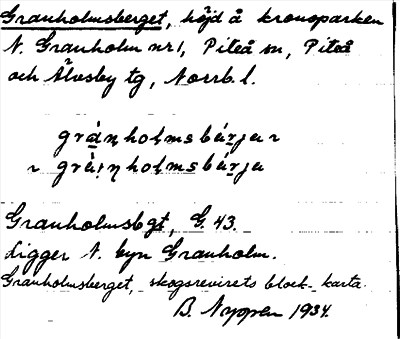 Granholmsberget, höjd å kronoparken
N. Granholm nr 1, Piteå sn, Piteå
och Älvsby tg, Norrb. l.
grànholmsbárja ~
~ grà:nholmsbárja
Granholmsbgt, G. 43.
Ligger N. byn Granholm.
Granholmsberget, skogsrevirets block-karta.
B. Nyppen 1934.